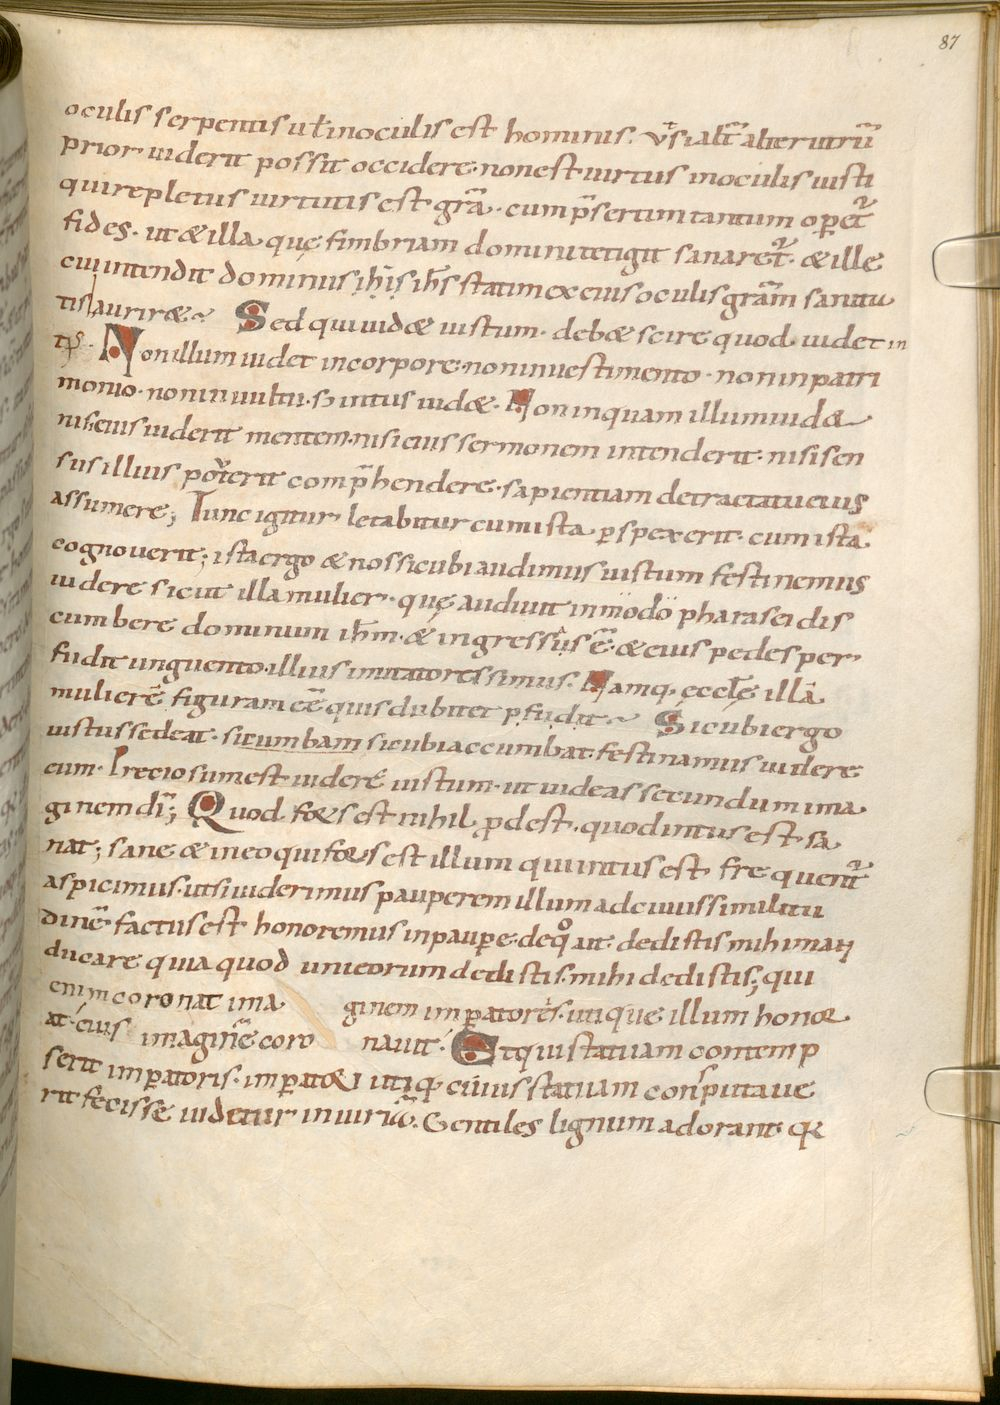 87
oculis serpentis ut̄ inoculis est hominis. ut̄ si alt̄ alterutrū
prior uiderit possit occidere· non est uirtus inoculis iusti
qui repletus uirtutis est grā· cum p̄sertim tantum operet᷑
fides· ut & illa quę fimbriam domini tetigit sanaret᷑· & ille
cui intendit dominus ih̄s statim ex eius oculis grām sanita
tis aurir&~ Sed qui uid& iustum· deb& scire quod uidet in
Non illum uidet in corpore· non inuestimento· non in patri
monio· non in uultu· s; intus uid&· Non inquam illum uid&
nisi eius uiderit mentem· nisi eius sermonem intenderit· nisi sen
sus illius pot̄erit comp̄hendere· sapientiam de tractatu eius
assumere; Tunc igitur letabitur cum ista ꝑspexerit· cum ista
cognouerit; ista ergo & nos sicubi audimus iustum festinemus
uidere sicut illa mulier· quę audiuit in modo pharasei dis
cumbere dominum ih̄m· & ingressus ē· & eius pedes per
fudit unguento· illius imitatores simus. Namq· eccłę illā
mulierē figuram eē quis dubitet ꝑfudit~ Sicubi ergo
iustus sedeat· sicumbam sicubi accumbat· festinamus uidere
eum· Preciosum est uidere iustum· ut uideas secundum ima
ginem dī; Quod foris est nihil ꝓdest· quod intus est sa
nat; sane & in eo qui foris est illum qui intus est frequent᷑
aspicimus· ut si uiderimus pauperem illum ad cuius similitu
dinē factus est honoremus in pauꝑe· de qº ait dedistis mihi man
ducare quia quod uni eorum dedistis· mihi dedistis; qui
enim coronat ima ginem imꝑatoris· utique illum honor
at· cuius imaginē coro nauit· Et qui statuam contemp
serit imꝑatoris· imꝑatori utiq· cuius statuam consputaue
rit fecisse uidetur iniuriā. Gentiles lignum adorant· q